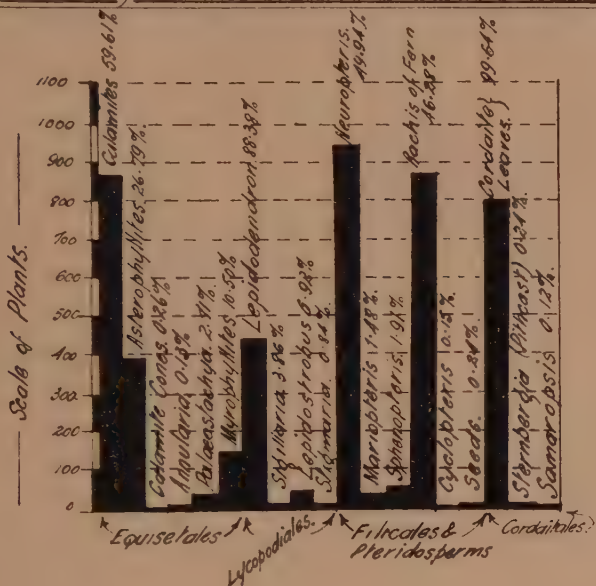 Scale of Plants.
1100
1000
900
800
700
600
500
400
300
200
100
0
Calamites 59.61%
Asterophyllites 26.79%.
Calamite Cones. 0.26%
Annularia 0.13%
Palaeostachya. 2.71%
Myriophyllites 10.50%
Lepidodendron. 88.38%
Sigillaria 3.86%
Lepidostrobus 6.92%
Stigmaria. 0.84%
Neuropteris.
49.94%
Mariopteris. 1.48%
Sphenopteris. 1.92%
Rachis of Fern
46.28%
Cyclopteris 0.15%
Seeds. 0.24%
Cordaite 99.64%
Leaves.
Sternbergia (Pithcast) 0.24%
Samaropsis. 0.12%
Equisetales
Lycopodiales.
Filicales &
Pteridosperms
Cordaitales.